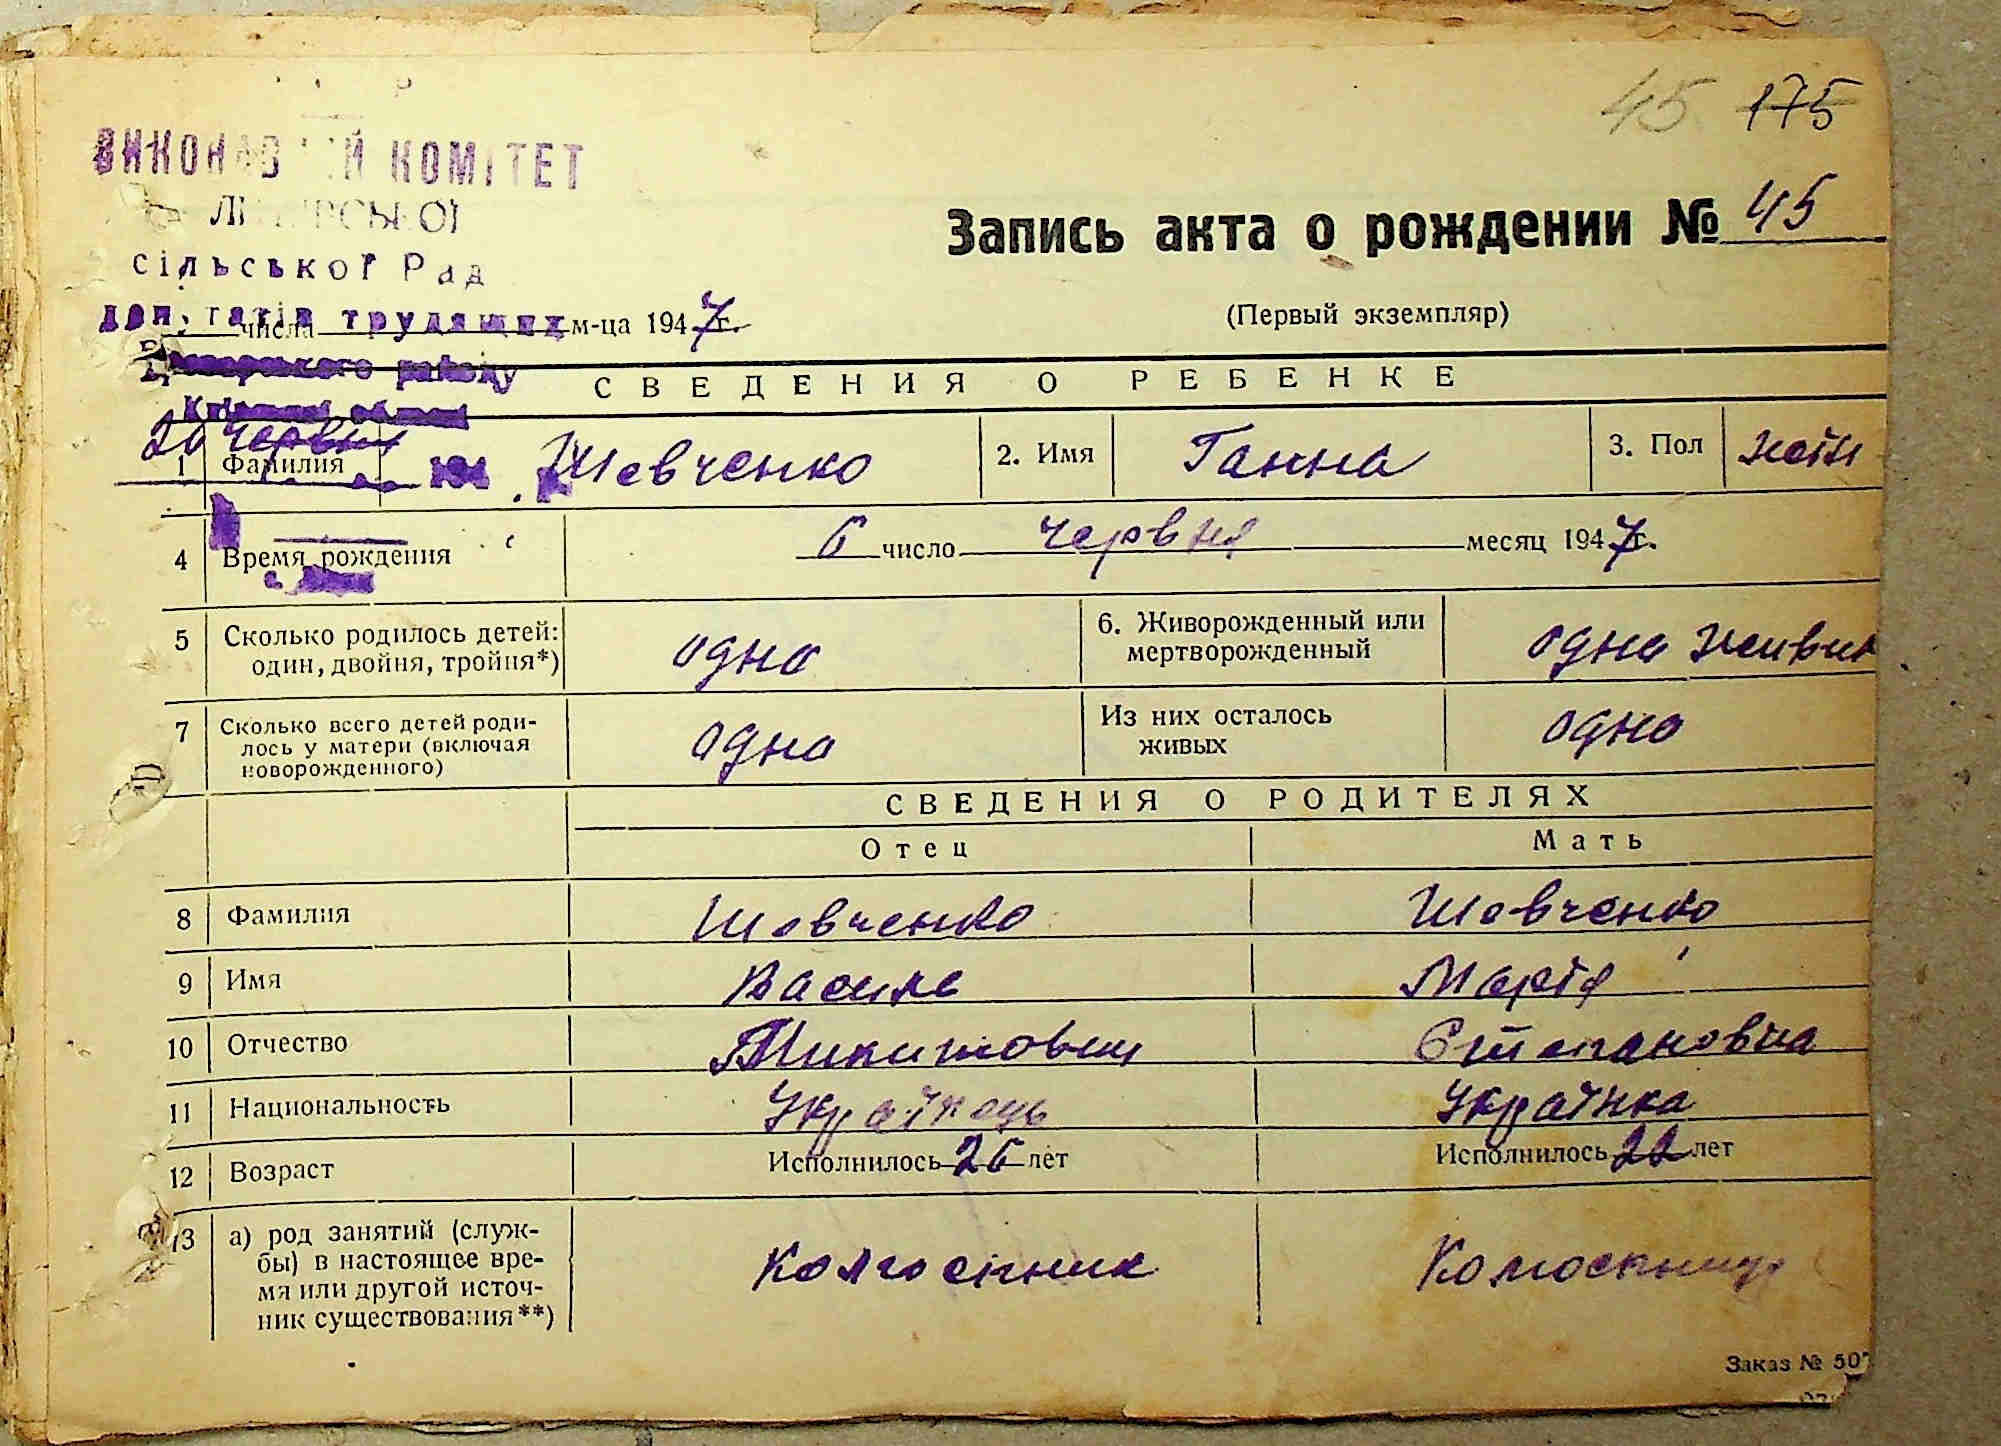 45 175
ВИКОНАВЧИЙ КОМІТЕТ
сільської Рад
депутатів трудящих
числа м-ца 1947г.
Запись акта о рождении № 45
(Первый экземпляр)
району
СВЕДЕНИЯ О РЕБЕНКЕ
20 червня 194
1 Фамилия Шевченко 2. Имя Ганна 3. Пол жін
4 Время рождения 6 число червня месяц 1947г.
5 Сколько родилось детей: один, двойня, тройня*) одна 6. Живорожденный или мертворожденный одна жива
7 Сколько всего детей роди-
лось у матери (включая
новорожденного) одна Из них осталось живых одна
СВЕДЕНИЯ О РОДИТЕЛЯХ
Отец Мать
8 Фамилия Шевченко Шевченко
9 Имя Василь Марія
10 Отчество Микитович Степановна
11 Национальность Українець Українка
12 Возраст Исполнилось 26 лет Исполнилось 22 лет
13 а) род занятий (служ-
бы) в настоящее вре-
мя или другой источ-
ник существования**) Колгоспник Колгоспниця
Заказ № 507